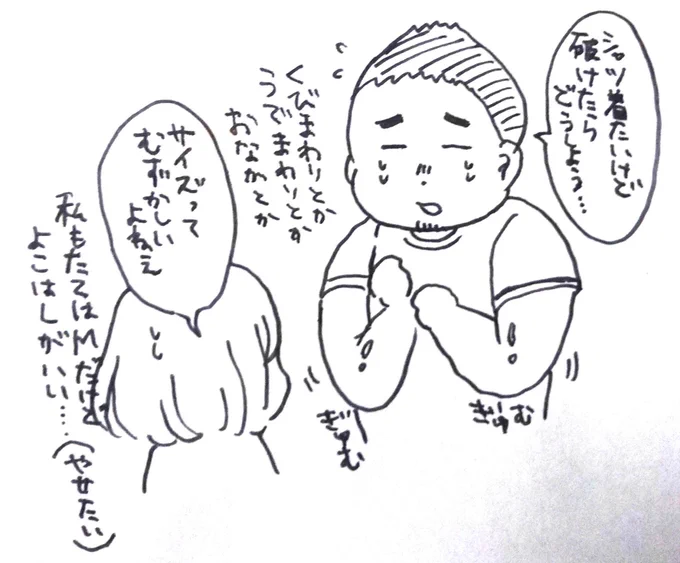 シャツ着たいけど
破けたら
どうしよう…
くびまわりとか
うでまわりとか
おなかとか
ぎゅむ
ぎゅむ
サイズって
むずかしい
よねえ
私もたてはMだけど
よこはLがいい……
(やせたい)